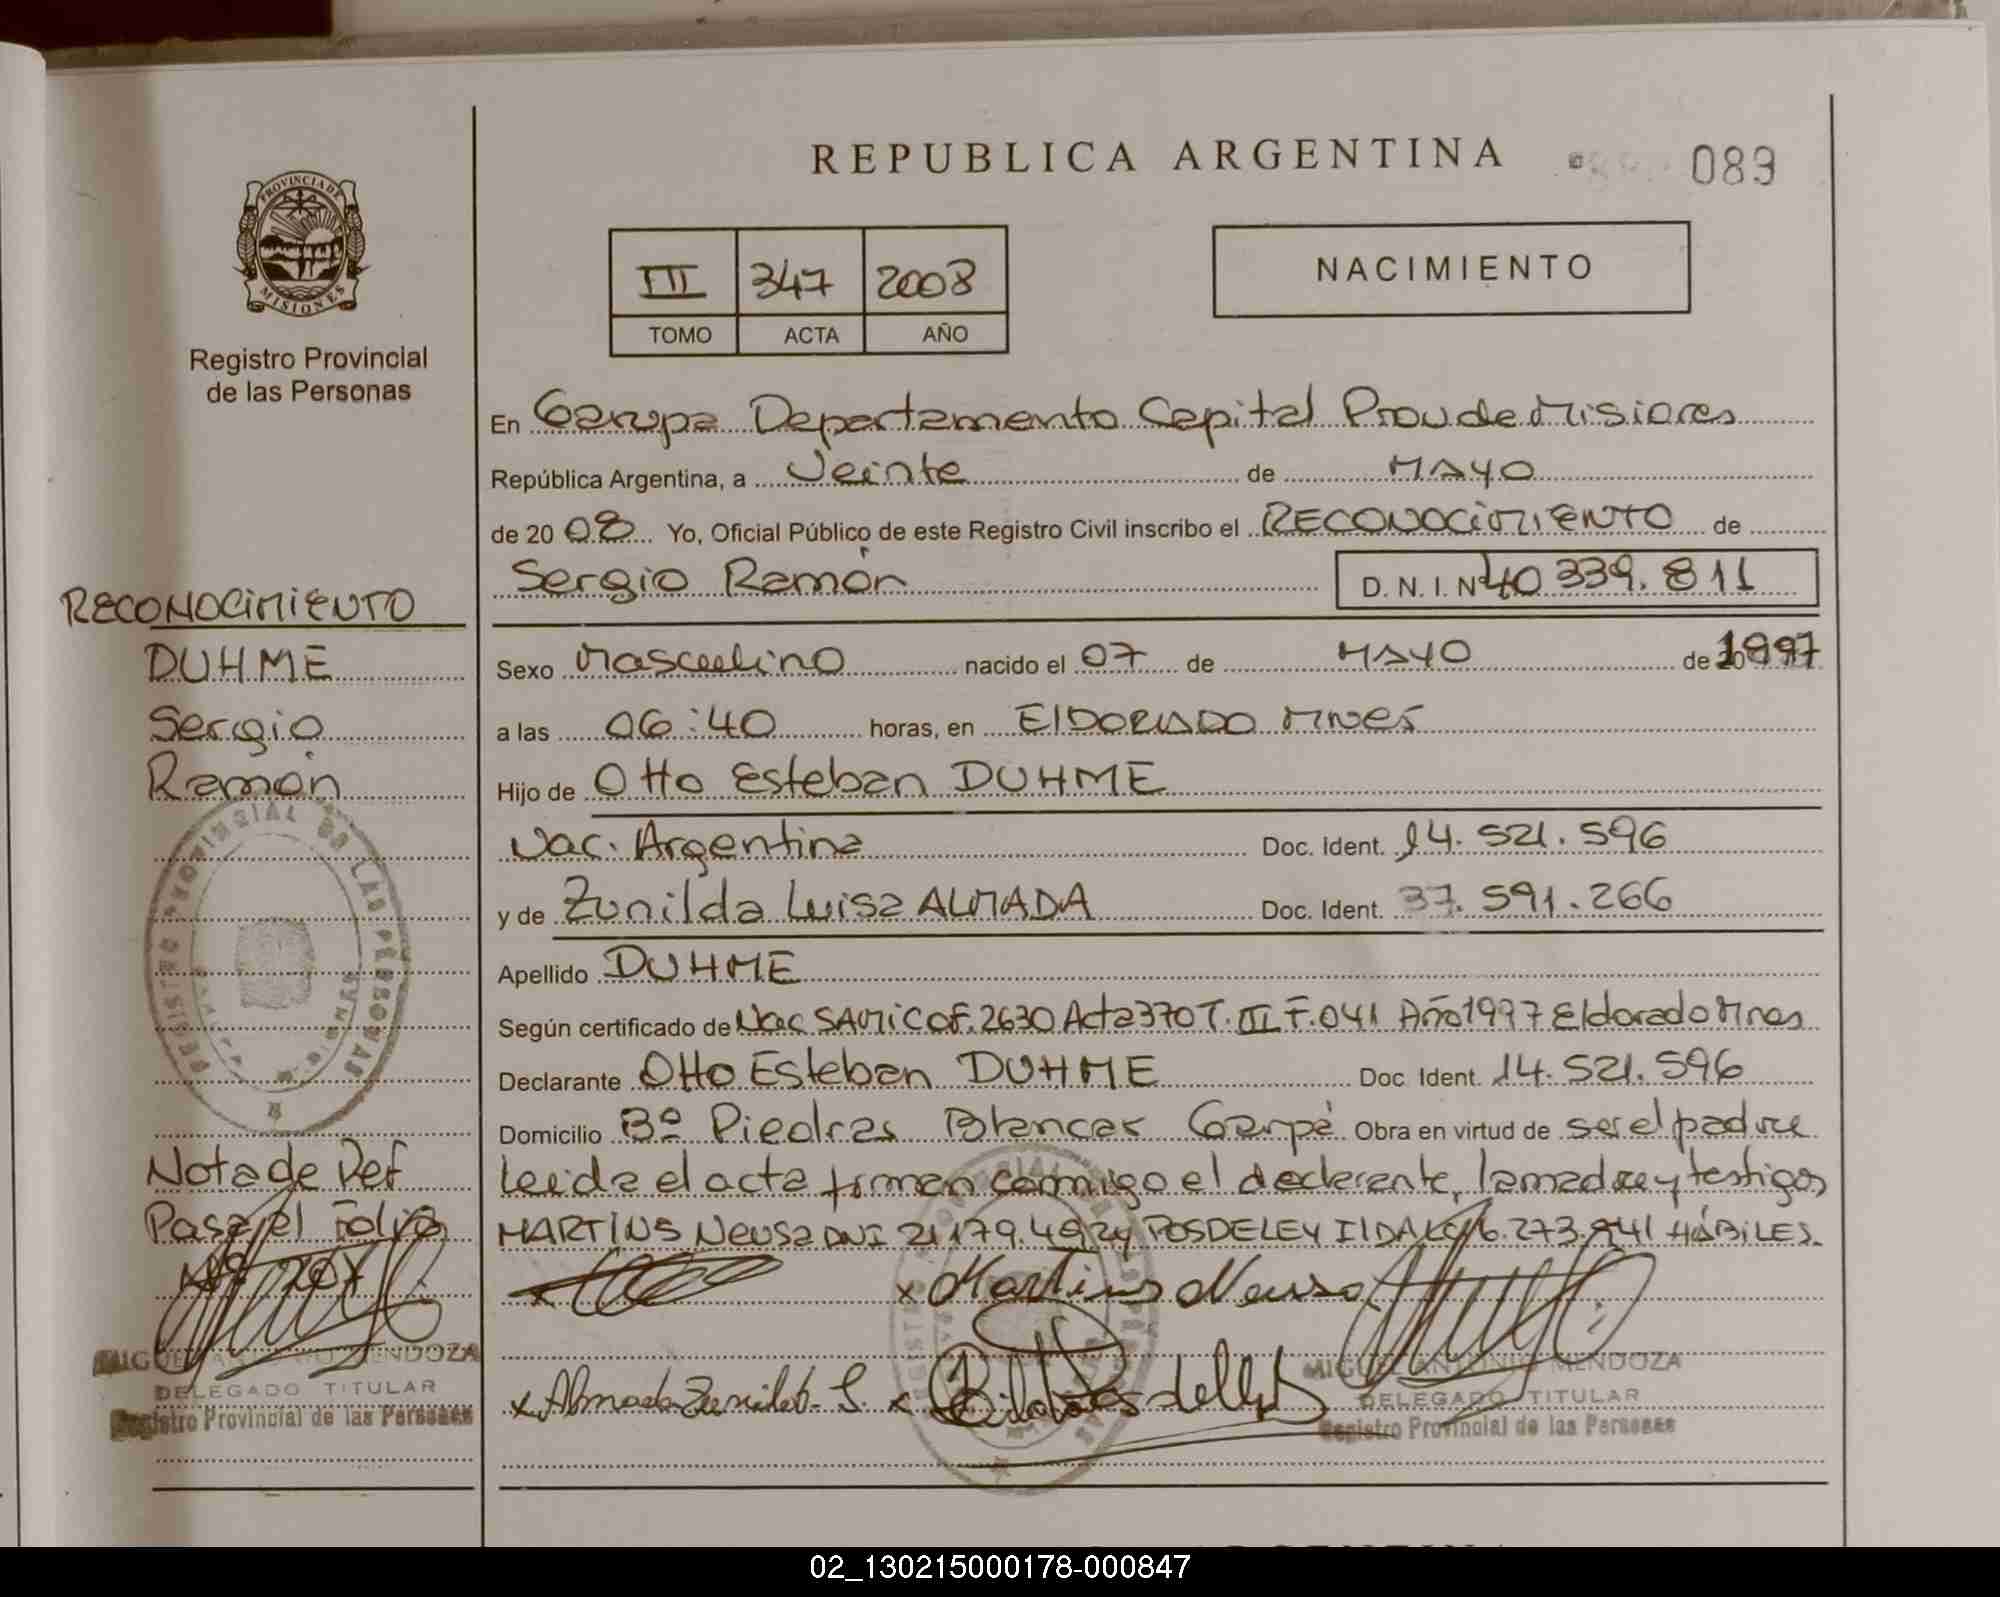 REPUBLICA ARGENTINA
089
PROVINCIA DE
MISIONES
Registro Provincial
de las Personas
III 347 2008
TOMO ACTA AÑO
NACIMIENTO
En Garupa Departamento Capital Prov de Misiones
República Argentina, a Veinte de MAYO
de 20 08 Yo, Oficial Público de este Registro Civil inscribo el RECONOCIMIENTO de
Sergio Ramón D. N. I. Nº 40 339. 811
RECONOCIMIENTO
DUHME
Sergio
Ramón
Sexo Masculino nacido el 07 de MAYO de 1997
a las 06:40 horas, en ElDORADO Mnes
Hijo de Otto Esteban DUHME
Nac. Argentina Doc. Ident. 14. 521. 596
y de Zunilda Luisa ALMADA Doc. Ident. 37. 591. 266
Apellido DUHME
Según certificado de Nac SAMIC OF. 2630 Acta 370 T. III F. 041 Año 1997 Eldorado Mnes
Declarante Otto Esteban DUHME Doc Ident. 14. 521. 596
Domicilio Bº Piedras Blancas Garpá Obra en virtud de ser el padre
Leida el acta firman conmigo el declarante, la madre y testigos
MARTINS Neusa DNI 21 179. 492 y POSDELEY ILDA 6. 273. 941 HÁBILES.
Nota de Ref
Pasa el Folio
Nº 207
REGISTRO PROVINCIAL DE LAS PERSONAS
x Martins Neusa
x Almada Zunilda L. x
MIGUEL ANTONIO MENDOZA
DELEGADO TITULAR
Registro Provincial de las Personas
MIGUEL ANTONIO MENDOZA
DELEGADO TITULAR
Registro Provincial de las Personas
02_130215000178-000847